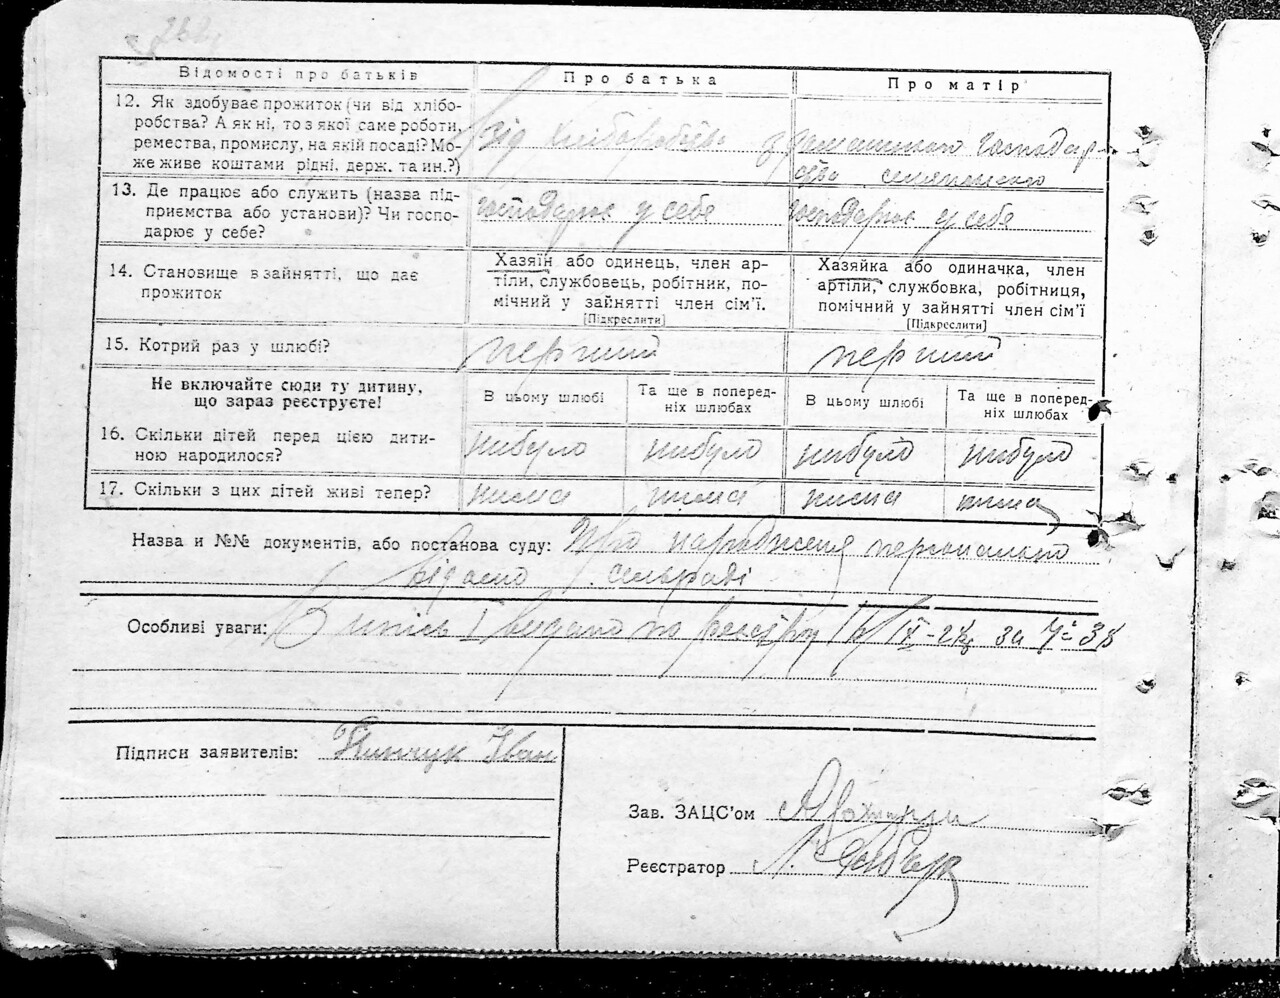 Відомості про батьків
Про батька
Про матір
12. Як здобуває прожиток (чи від хлібо-
робства? А як ні, то з якої саме роботи,
ремества, промислу, на якій посаді? Мо-
же живе коштами рідні, держ. та ин.?)
від хліборобства
з домашнього господар-
ства селянського
13. Де працює або служить (назва під-
приємства або установи)? Чи госпо-
дарює у себе?
господарює у себе
господарює у себе
14. Становище в зайнятті, що дає
прожиток
Хазяїн або одинець, член ар-
тіли, службовець, робітник, по-
мічний у зайнятті член сім'ї.
[Підкреслити]
Хазяйка або одиначка, член
артіли, службовка, робітниця,
помічний у зайнятті член сім'ї
[Підкреслити]
15. Котрий раз у шлюбі?
перший
перший
Не включайте сюди ту дитину,
що зараз реєструєте!
В цьому шлюбі
Та ще в поперед-
ніх шлюбах
В цьому шлюбі
Та ще в поперед-
ніх шлюбах
16. Скільки дітей перед цією дити-
ною народилося?
нибуло
нибуло
нибуло
нибуло
17. Скільки з цих дітей живі тепер?
нима
нима
нима
нима
Назва и №№ документів, або постанова суду: Про народження персонально
відомо сельраді
Особливі уваги: видано по реєстру за № 38
Підписи заявителів: Пинчук Іван
Зав. ЗАЦС'ом
Реєстратор